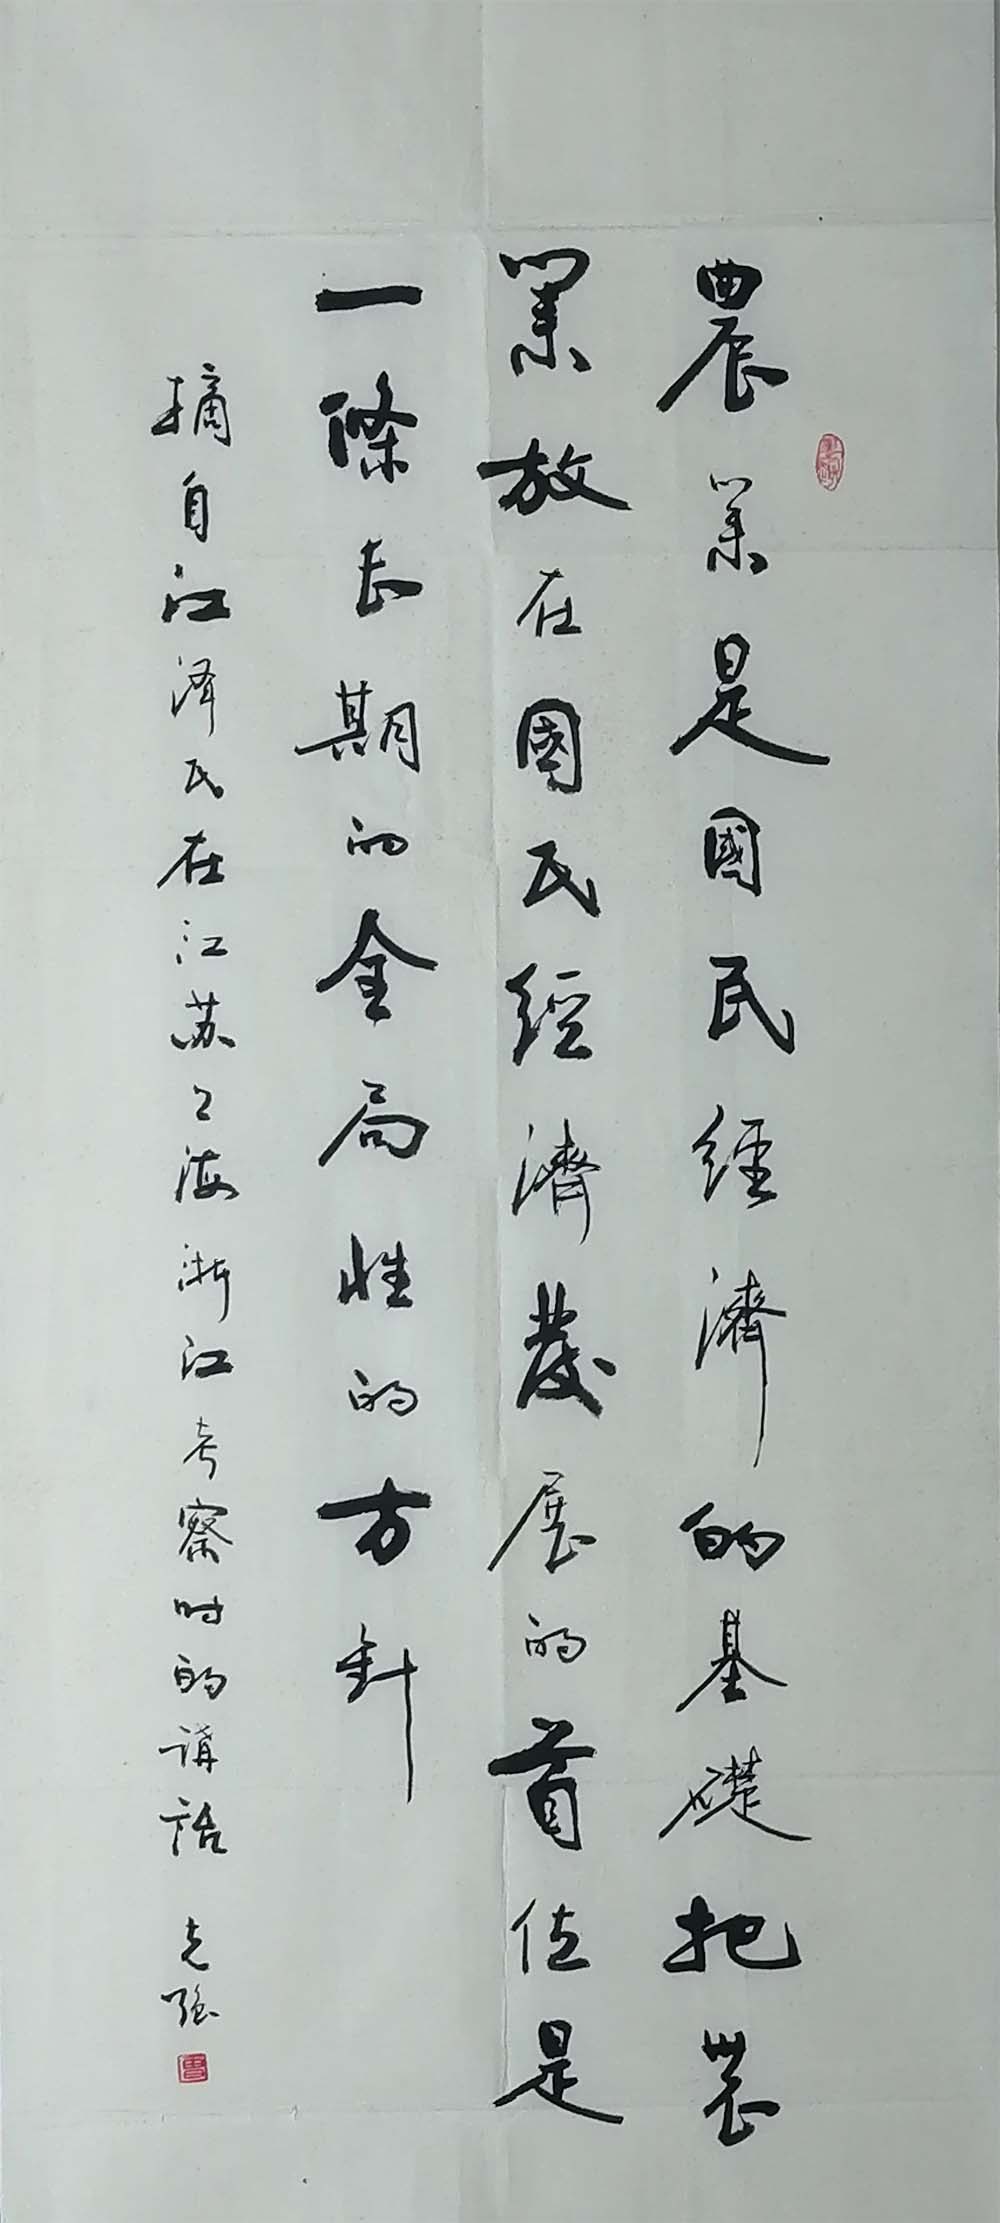 農業是國民經濟的基礎把農
業放在國民經濟發展的首位是
一條長期的全局性的方針
摘自江泽民在江苏上海浙江考察时的講話 克强